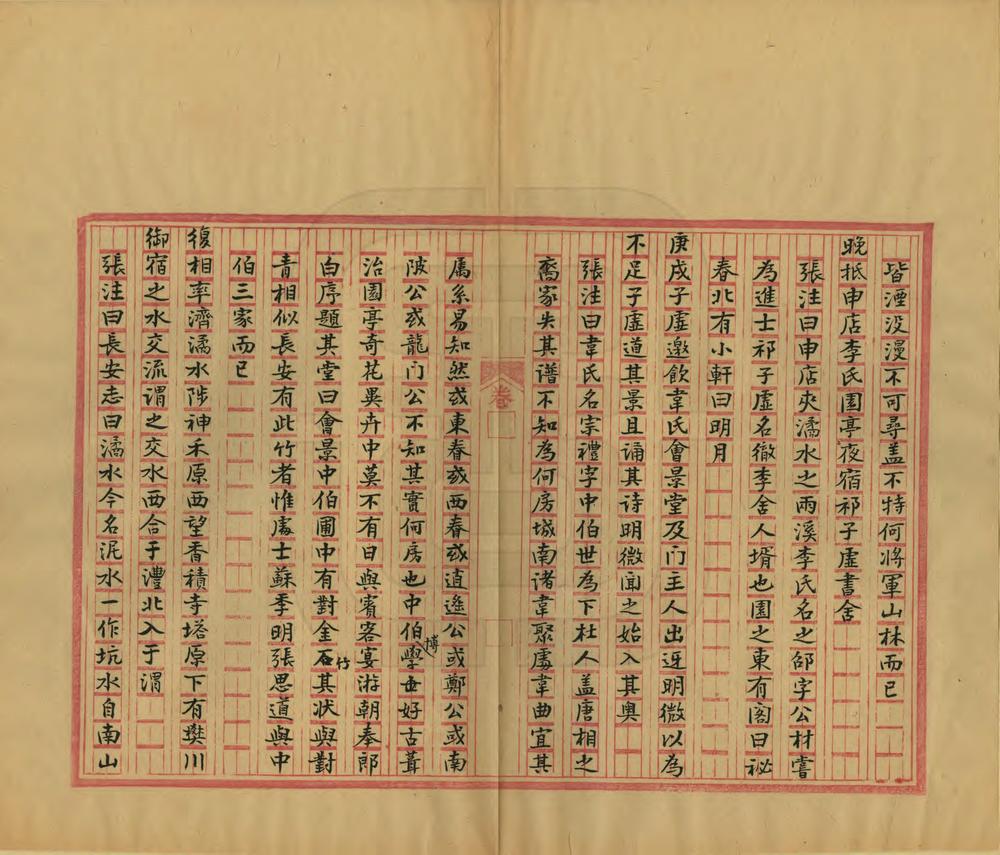 皆湮没漫不可尋盖不特何將軍山林而已
晚抵申店李氏園亭夜宿祁子虛書舍
張注曰申店夾潏水之兩溪李氏名之邵字公材嘗
為進士祁子虛名徹李舍人壻也園之東有閣曰祕
春北有小軒曰明月
庚戌子虛邀飲韋氏會景堂及门主人出迓明微以為
不足子虛道其景且誦其诗明微闻之始入其奥
張注曰韋氏名宗禮字中伯世為下杜人盖唐相之
裔家失其谱不知為何房城南诸韋聚處韋曲宜其
属系易知然或東眷或西眷或逍遥公或鄭公或南
陂公或龍门公不知其實何房也中伯博學好古葺
治園亭奇花異卉中莫不有日與賓客宴游朝奉郎
白序題其堂曰會景中伯圃中有對金石竹其状與對
青相似長安有此竹者惟處士蘇季明張思道與中
伯三家而已
復相率濟潏水陟神禾原西望香積寺塔原下有樊川
御宿之水交流谓之交水西合于灃北入于渭
張注曰長安志曰潏水今名泥水一作坑水自南山
卷